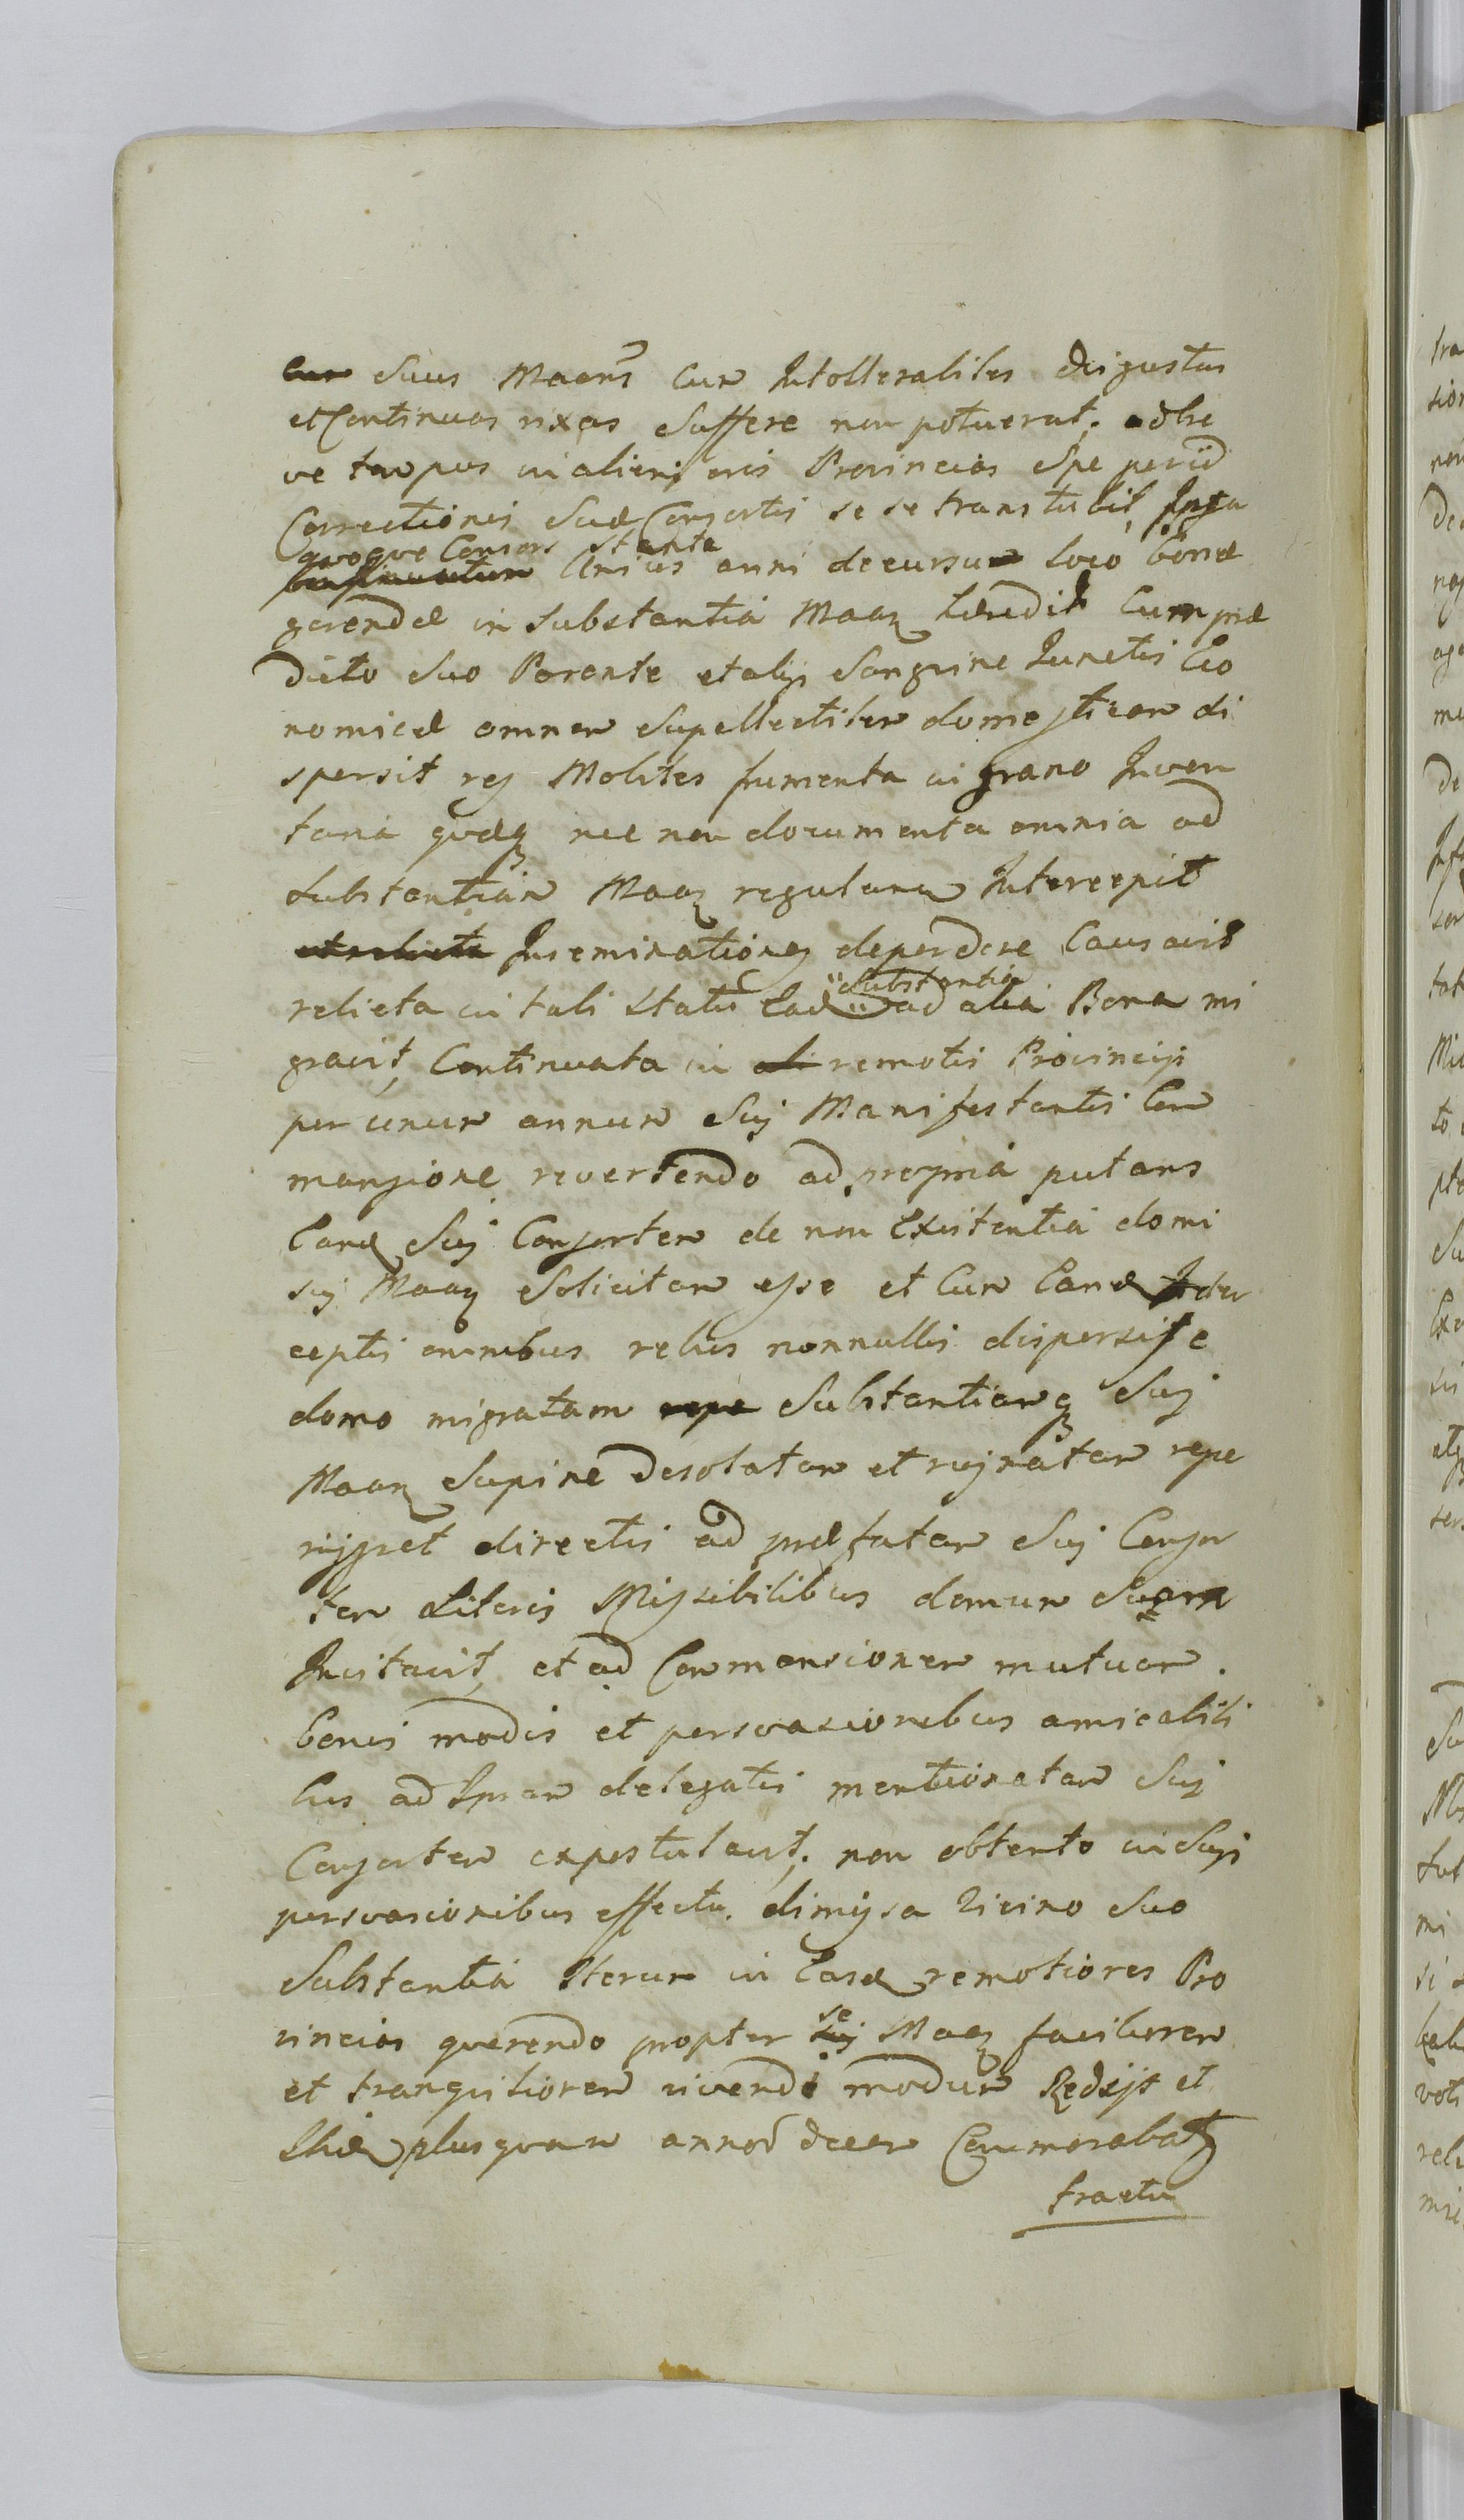 cum suus Maans cum Intollerabiles disgustus
et Continuas rixas suffere non potuerat. ad bre
ve tempus in alieniores Provincias spe per id
Correctionis suae Consortis se se transtulit, Ipsa
quoque Consors stante
Unius anni decursu loco bonae
gerendae in substantia Maan Curae cum prae
dicto suo Parente et alijs sanguine Iunctis Eco
nomicae omnem supellectilem domesticam di
spersit res Mobiles frumenta in grano Inven
taria quaeq nec non documenta omnia ad
substantiam Maan regulana Intercepit
et relicta Inseminationes deperdere causavit
relicta in tali statu Ead substantia ad alia Bona mi
gravit, Continuata in ali remotis Provincijs
per unum annum sui Manifestantis Com
mansione, revertendo ad propria putans
Eand sui Consortem de non Existentia domi
sui Maan solicitam esse et cum Eand Inter
ceptis omnibus rebus nonnullis dispersis e
domo migratam repe substantiamq sui
Maan supine desolatam et ruinatam repe
rijsset directis ad praefatam sui Consor
tem Literis Missibilibus domum suam
Invitavit, et ad Commansionem mutuam.
bonis modis et persvasionibus amicabili
bus ad Ipsam delegatis mentionatam sui
Consortem expostulavit. non obtento in suis
persvasionibus effectu. dimissa vicino suo
substantia Iterum in Easd remotiores Pro
vincias querendo propter se sui Maan faciliorem
et tranquiliorem vivendi modum Redijt et
Ibid plusquam annos decem Commorabat
tractu